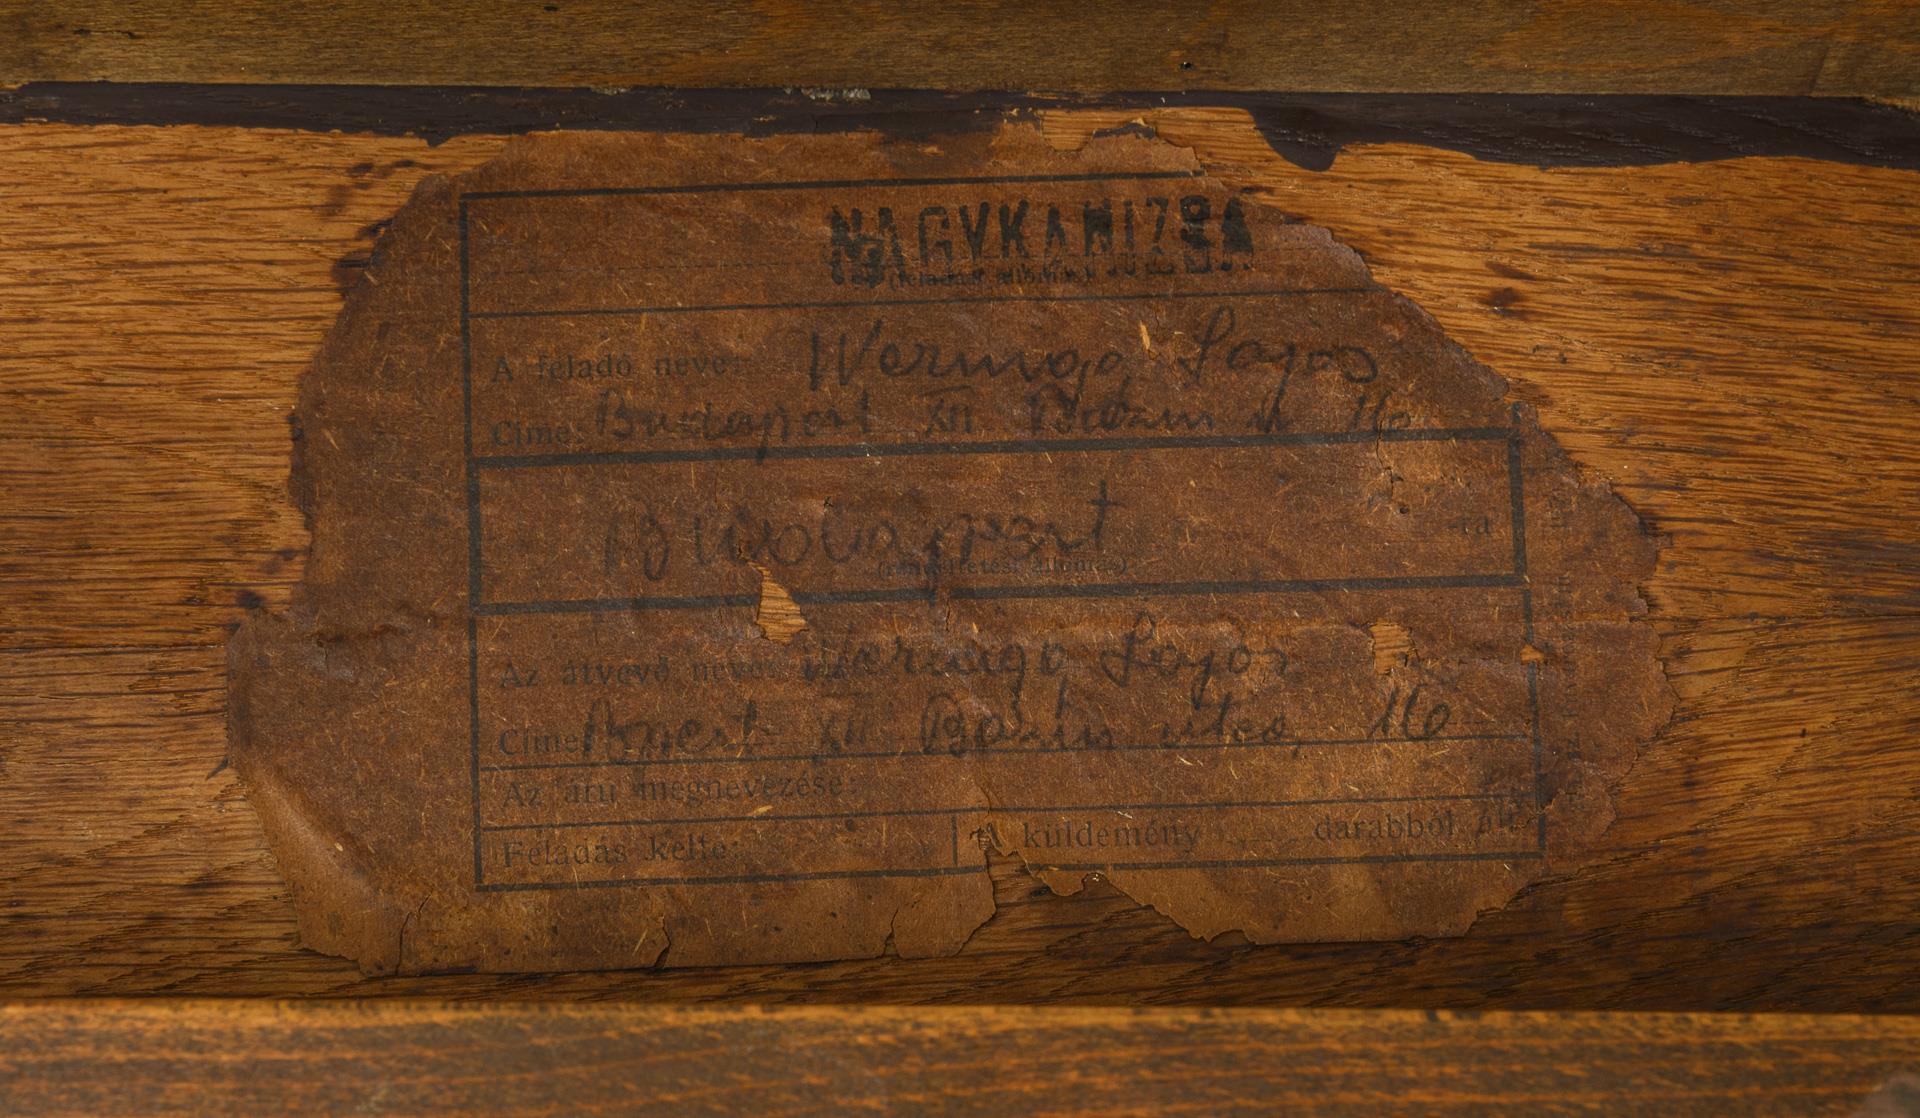 NAGYKANIZSA
(feladási állomás)
A feladó neve: Lajos
Cime: Budapest XII 16
Budapest -ra
(rendeltetési állomás)
Az átvevő neve: Lajos
Cime: Bpest XII Bazin utca, 16
Az áru megnevezése:
Feladás kelte: A küldemény darabból áll.